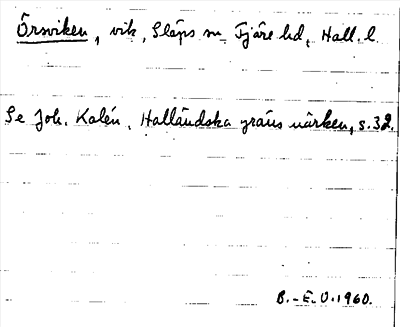 Örsviken, vik, Släps sn. Fjäre hd, Hall. l.
Se Joh. Kalén, Halländska gränsmärken, s. 32.
B.-E. O. 1960.